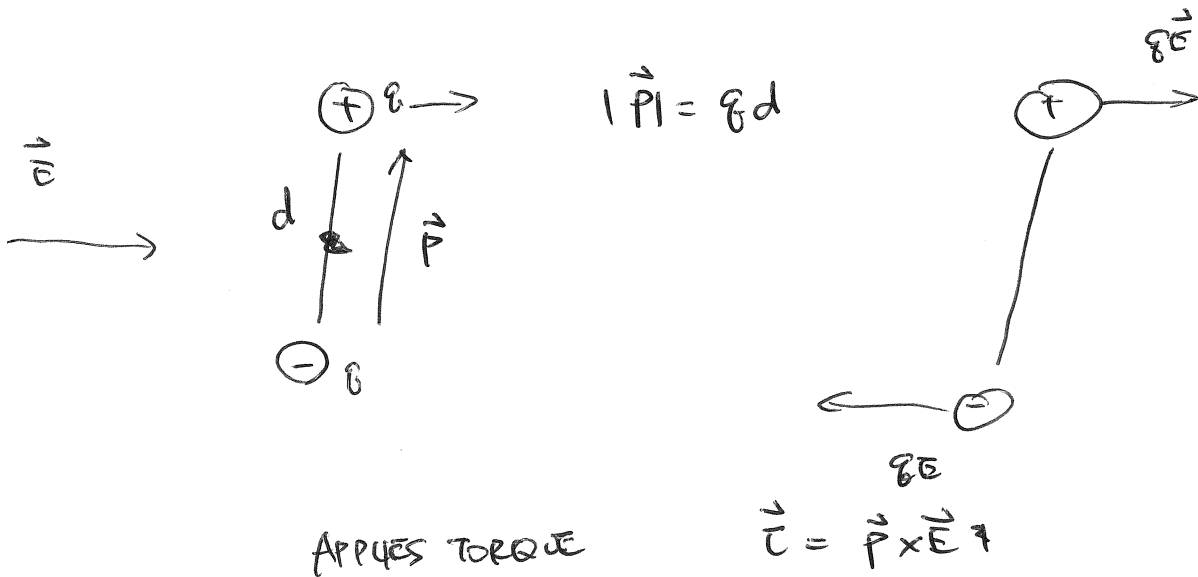 qE⃗
+ q
|P⃗| = qd
+
E⃗
d
P⃗
- q
-
qE
APPLIES TORQUE
τ⃗ = P⃗ × E⃗